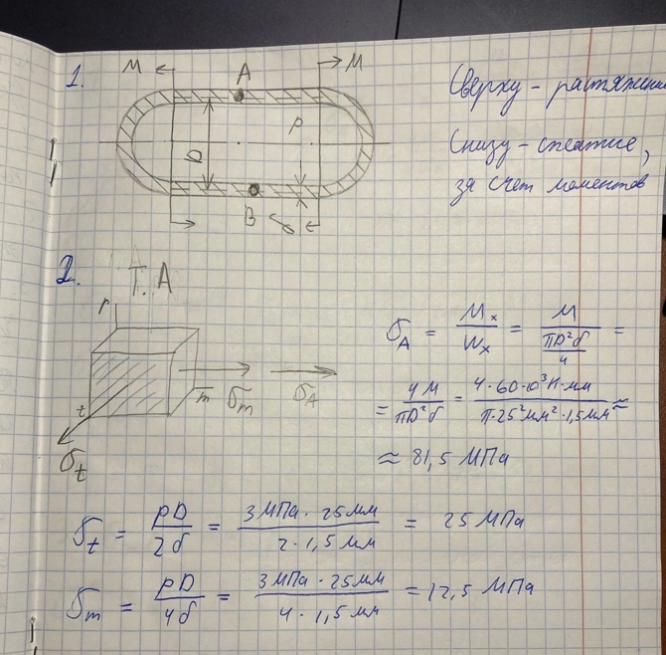 1.
M A M
Сверху - растяжени
D P
Снизу - сжатие,
за счет моментов
B δ
2. т. A
r
σ_A = M_x / W_x = M / (πD²δ / 4) =
t m σ_m σ_A
σ_t
= 4M / πD²δ = 4·60·10³Н·мм / π·25²мм²·1,5мм ≈
≈ 81,5 МПа
σ_t = pD / 2δ = 3МПа · 25мм / 2·1,5мм = 25 МПа
σ_m = pD / 4δ = 3МПа · 25мм / 4·1,5мм = 12,5 МПа